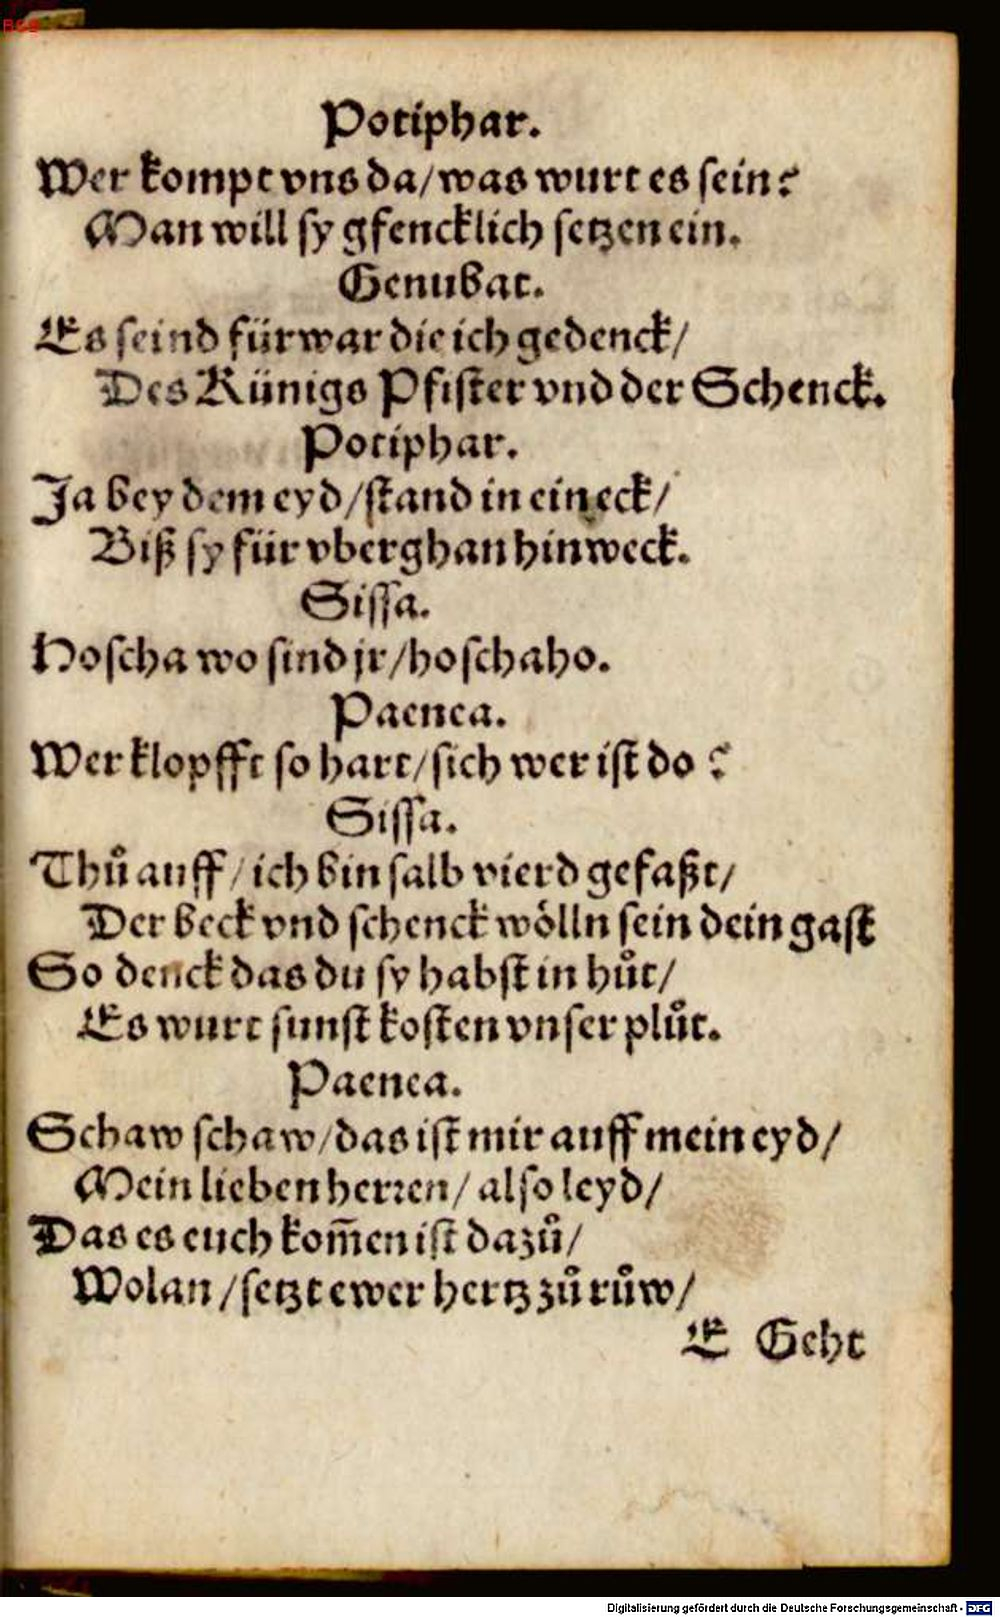 BSB
Potiphar.
Wer kompt vns da/ was wurt es sein?
Man will sy gfencklich setzen ein.
Genubat.
Es seind fürwar die ich gedenck/
Des Künigs Pfister vnd der Schenck.
Potiphar.
Ja bey dem eyd/ stand in ein eck/
Biß sy für vberghan hinweck.
Sissa.
Hoscha wo sind jr/ hoschaho.
Paenea.
Wer klopfft so hart/ sich wer ist do?
Sissa.
Thů auff/ ich bin salb vierd gefaßt/
Der beck vnd schenck wölln sein dein gast
So denck das du sy habst in hůt/
Es wurt sunst kosten vnser plůt.
Paenea.
Schaw schaw/ das ist mir auff mein eyd/
Mein lieben herren/ also leyd/
Das es euch kom̄en ist dazů/
Wolan/ setzt ewer hertz zů růw/
E Geht
Digitalisierung gefördert durch die Deutsche Forschungsgemeinschaft - DFG